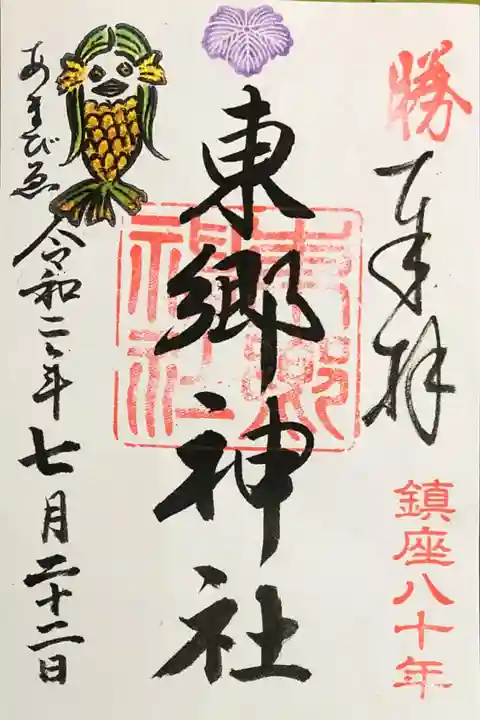 勝
奉拝
鎮座八十年
東郷神社
東郷神社
あまびゑ
令和二年七月二十二日